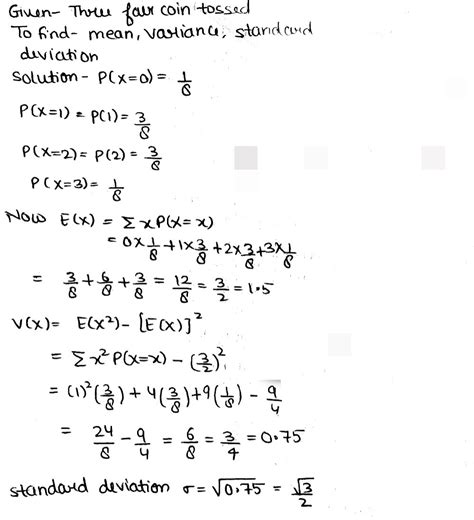 Given- Three fair coin tossed
To find- mean, variance, standard
deviation
Solution- P(X=0) = 1/8
P(X=1) = P(1) = 3/8
P(X=2) = P(2) = 3/8
P(X=3) = 1/8
Now E(X) = Σ x P(X=x)
= 0×1/8 + 1×3/8 + 2×3/8 + 3×1/8
= 3/8 + 6/8 + 3/8 = 12/8 = 3/2 = 1.5
V(X) = E(X²) - [E(X)]²
= Σx² P(X=x) - (3/2)²
= (1)²(3/8) + 4(3/8) + 9(1/8) - 9/4
= 24/8 - 9/4 = 6/8 = 3/4 = 0.75
standard deviation σ = √0.75 = √3/2